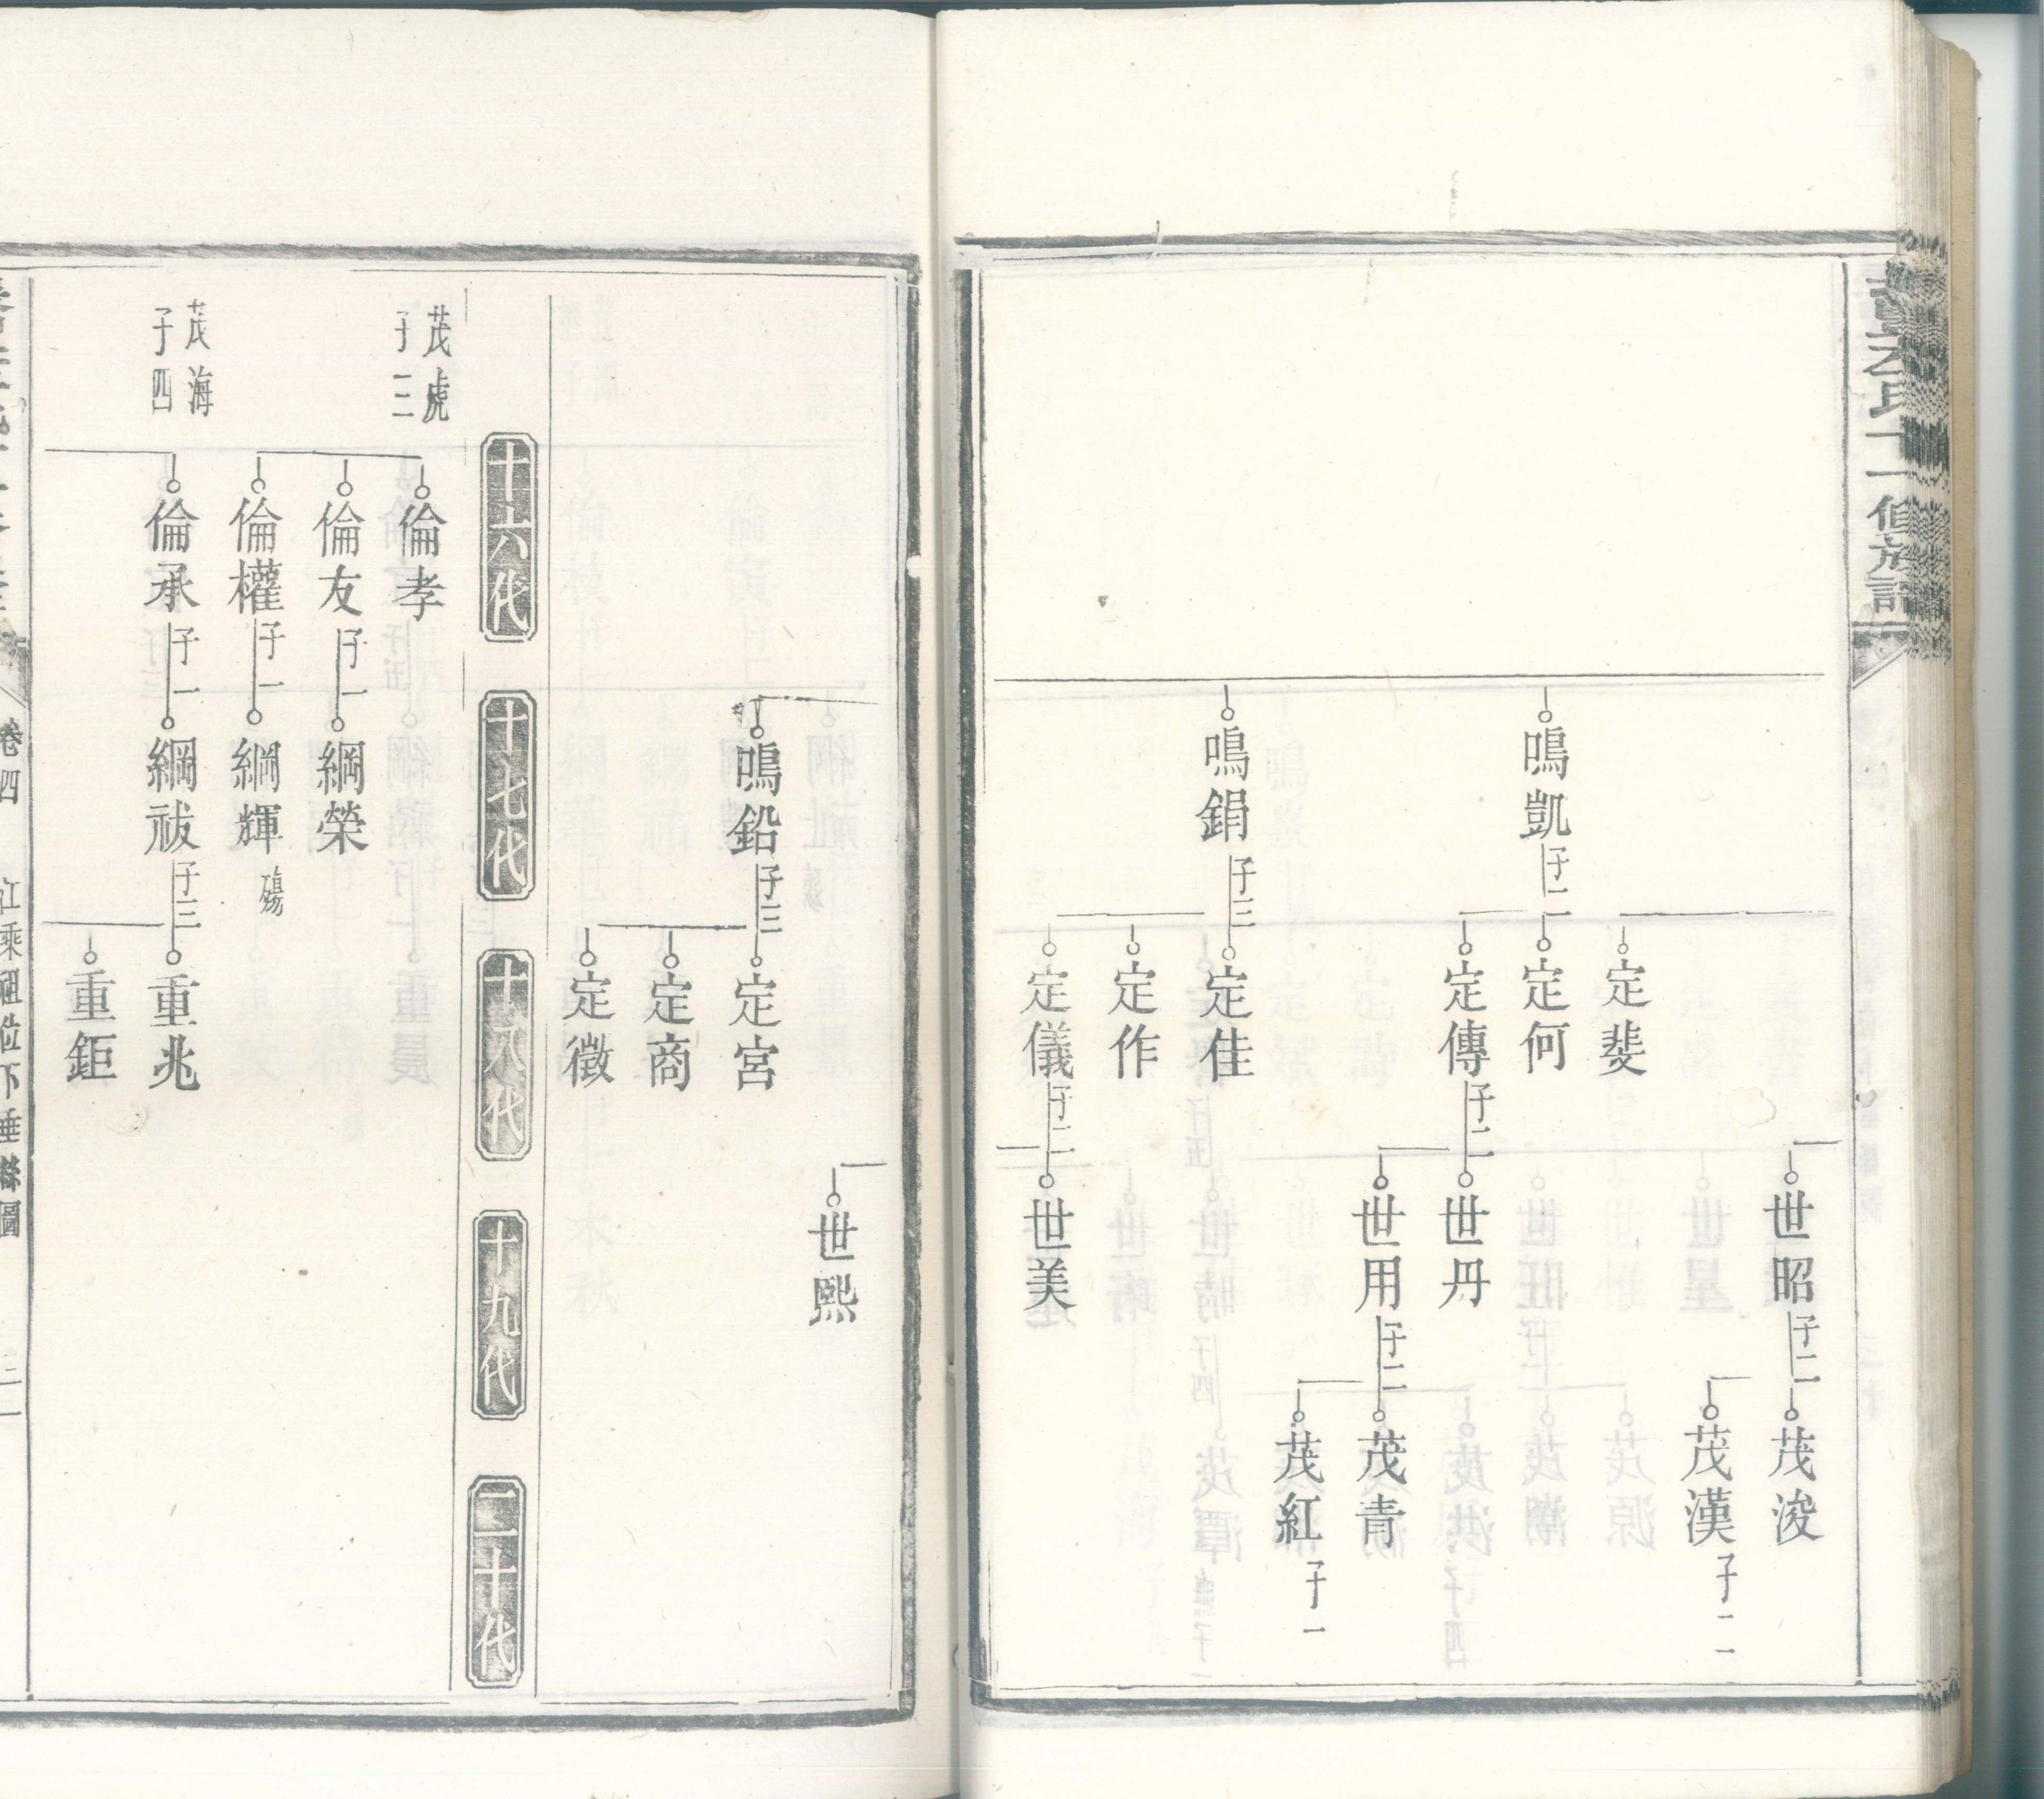 氏十一修族譜
鳴凱 子二
鳴鋗 子三
定斐
定何
定傳 子二
定佳
定作
定儀 子二
世昭 子二
世丹
世用 子二
世美
茂浚
茂漢 子二
茂青
茂紅 子一
鳴鉛 子三
定宮
定商
定徵
世熙
十六代
十七代
十八代
十九代
二十代
茂虎
子三
茂海
子四
倫孝
倫友 子一
倫權 子一
倫承 子一
綱榮
綱輝 殤
綱祓 子三
重兆
重鉅
卷四
江乘祖位下垂絲圖